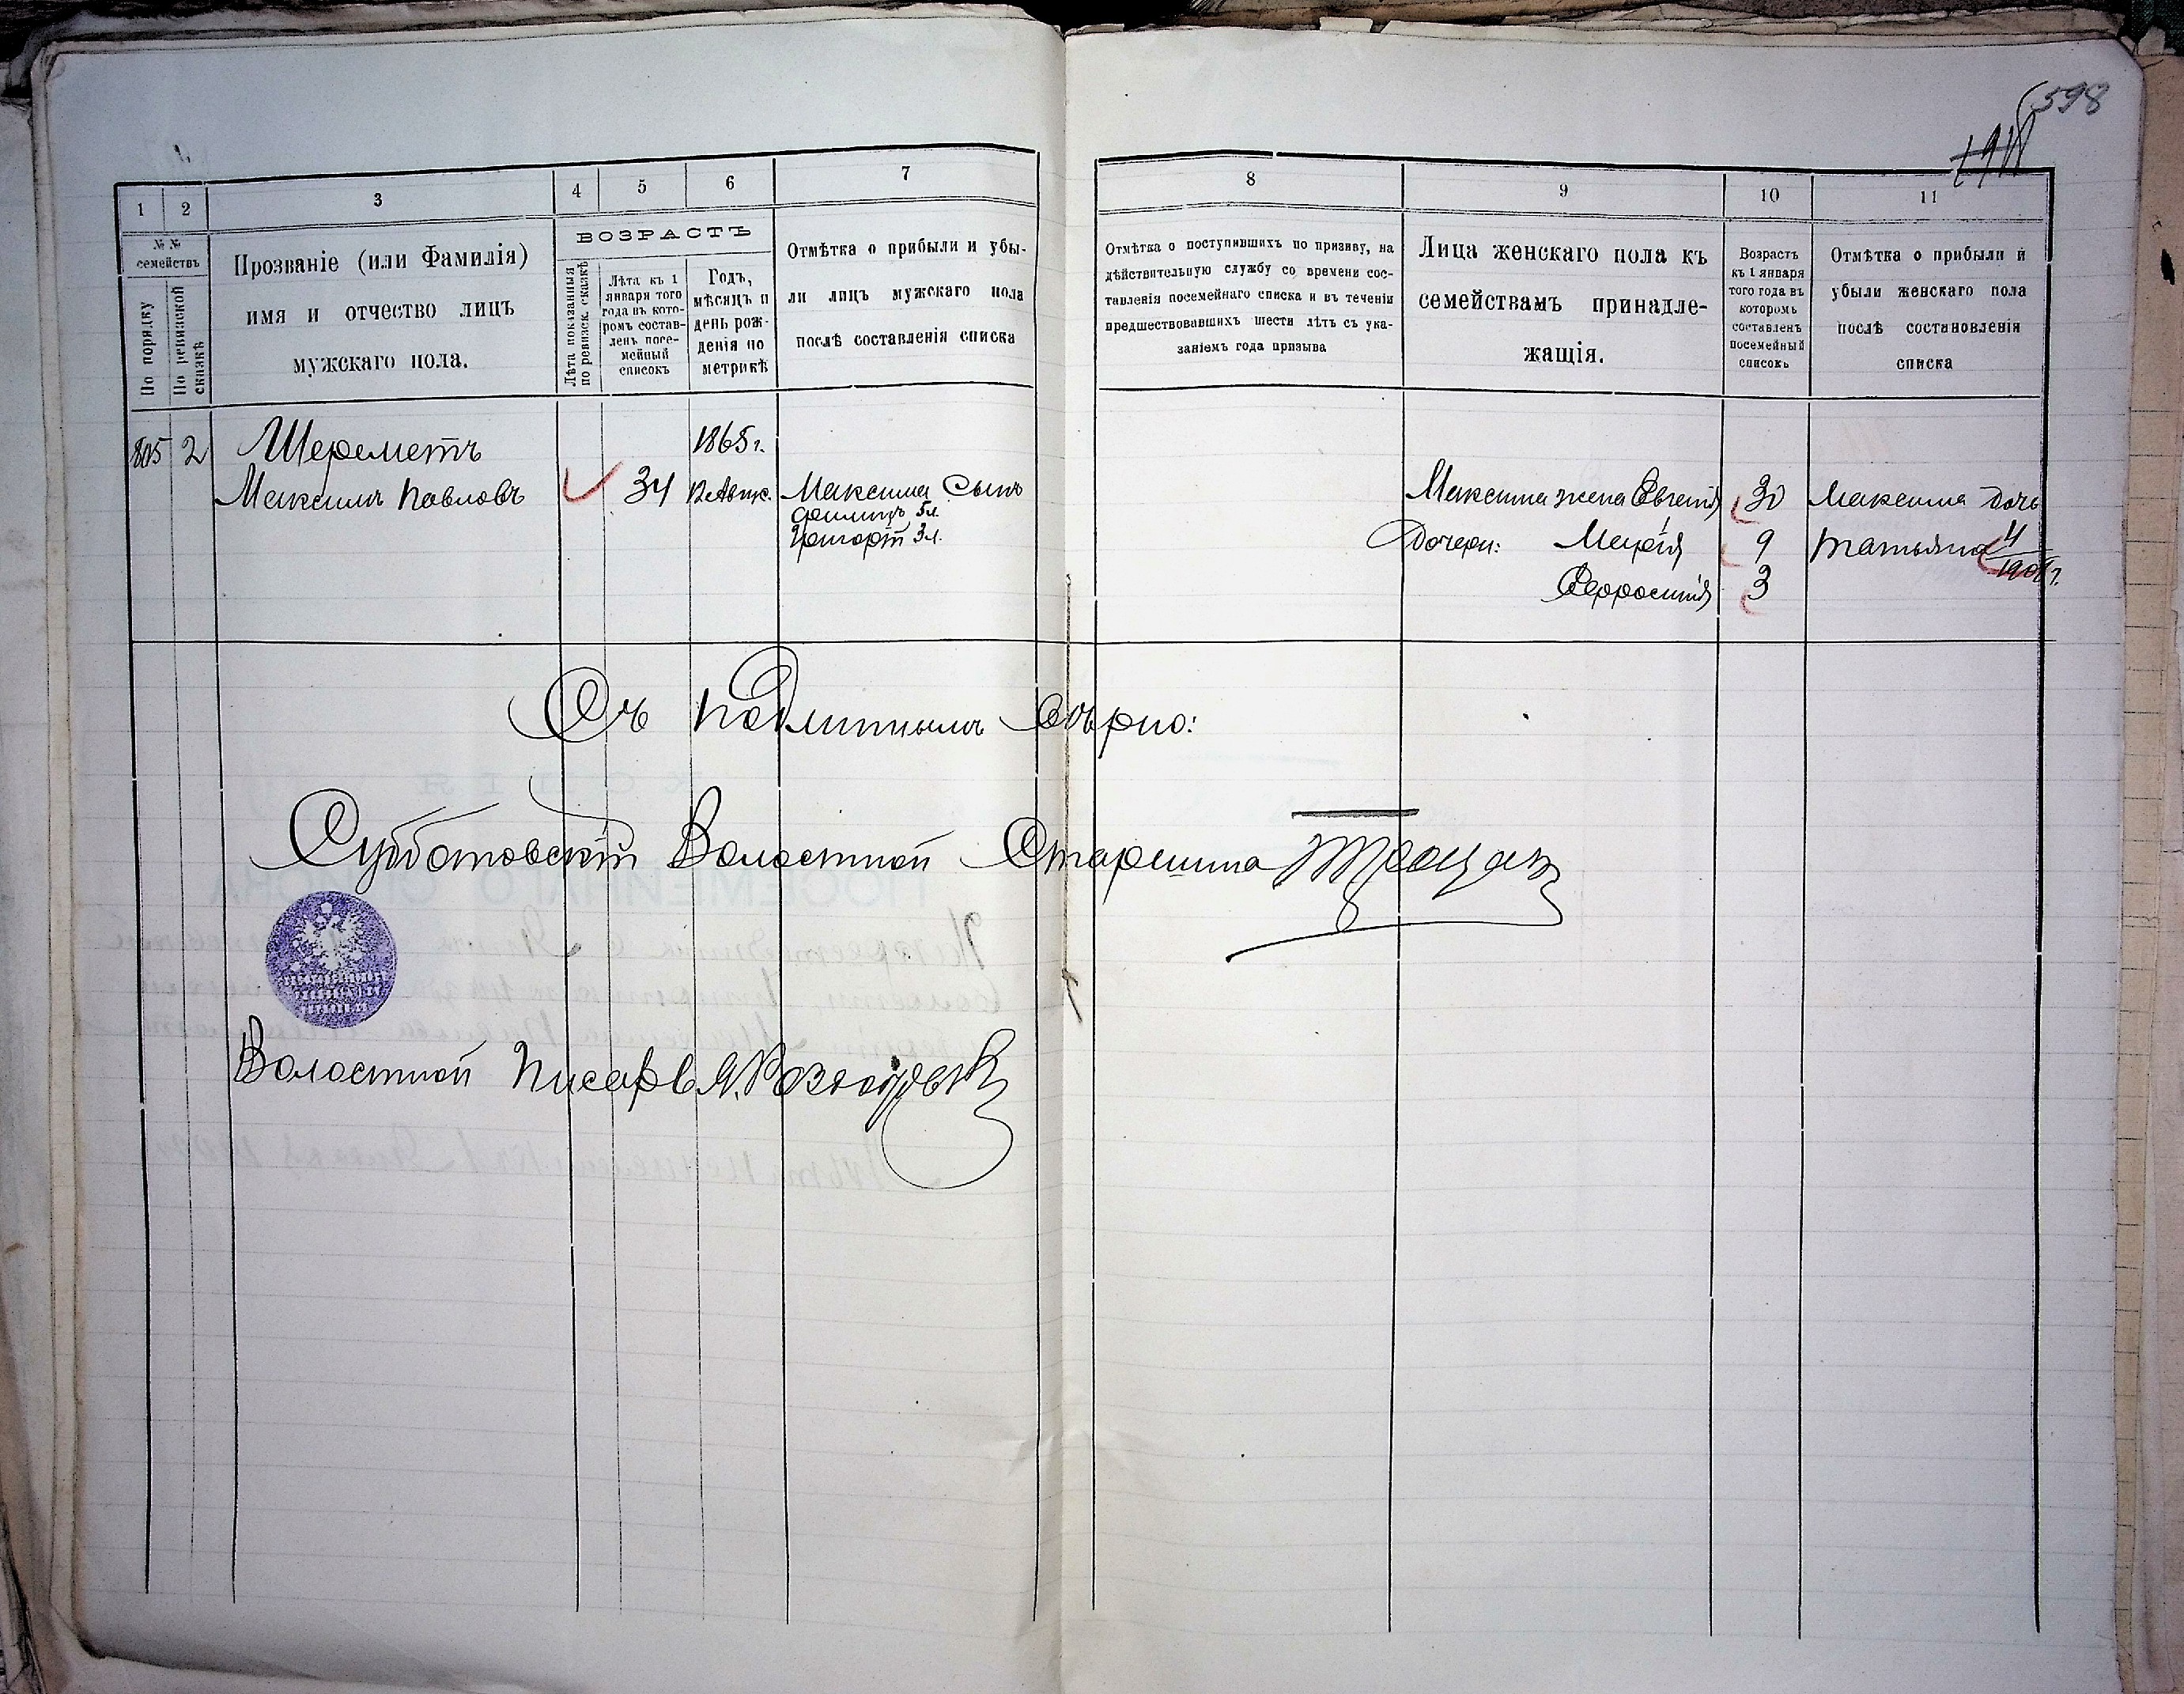 598
1 2 3 4 5 6 7
№№ семействъ
По порядку
По ревизской сказкѣ
Прозваніе (или Фамилія)
имя и отчество лицъ
мужскаго пола.
ВОЗРАСТЪ
Лѣта показанныя
по ревизск. сказкѣ
Лѣта къ 1
января того
года въ кото-
ромъ состав-
ленъ посе-
мейный
списокъ
Годъ,
мѣсяцъ и
день рож-
денія по
метрикѣ
Отмѣтка о прибыли и убы-
ли лицъ мужскаго пола
послѣ составленія списка
8 9 10 11
Отмѣтка о поступившихъ по призыву, на
дѣйствительную службу со времени сос-
тавленія посемейнаго списка и въ теченіи
предшествовавшихъ шести лѣтъ съ ука-
заніемъ года призыва
Лица женскаго пола къ
семействамъ принадле-
жащія.
Возрастъ
къ 1 января
того года въ
которомъ
составленъ
посемейный
списокъ
Отмѣтка о прибыли и
убыли женскаго пола
послѣ состановленія
списка
805 2 Шереметъ 1865 г.
Максимъ Павловъ 34 Максима Сынъ
Филипъ 5 л.
Григорій 3 л.
Максима жена Евгенія 30 Максима дочь
Дочери: Марія 9 Татьяна 4
Ефросинія 3
Съ подлиннымъ вѣрно:
Субботовскій Волостной Старшина
Волостной Писарь